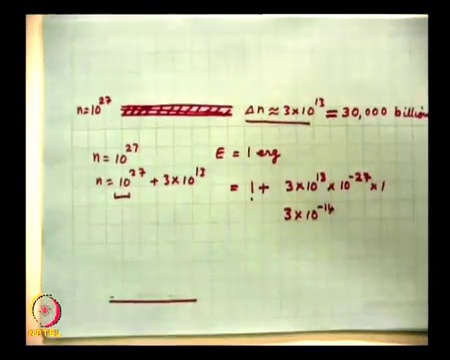 n=10^27 Δn ≈ 3×10^13 = 30,000 billion
n = 10^27 E = 1 erg
n = 10^27 + 3×10^13 = 1 + 3×10^13 × 10^-27 × 1
3×10^-14
NPTEL